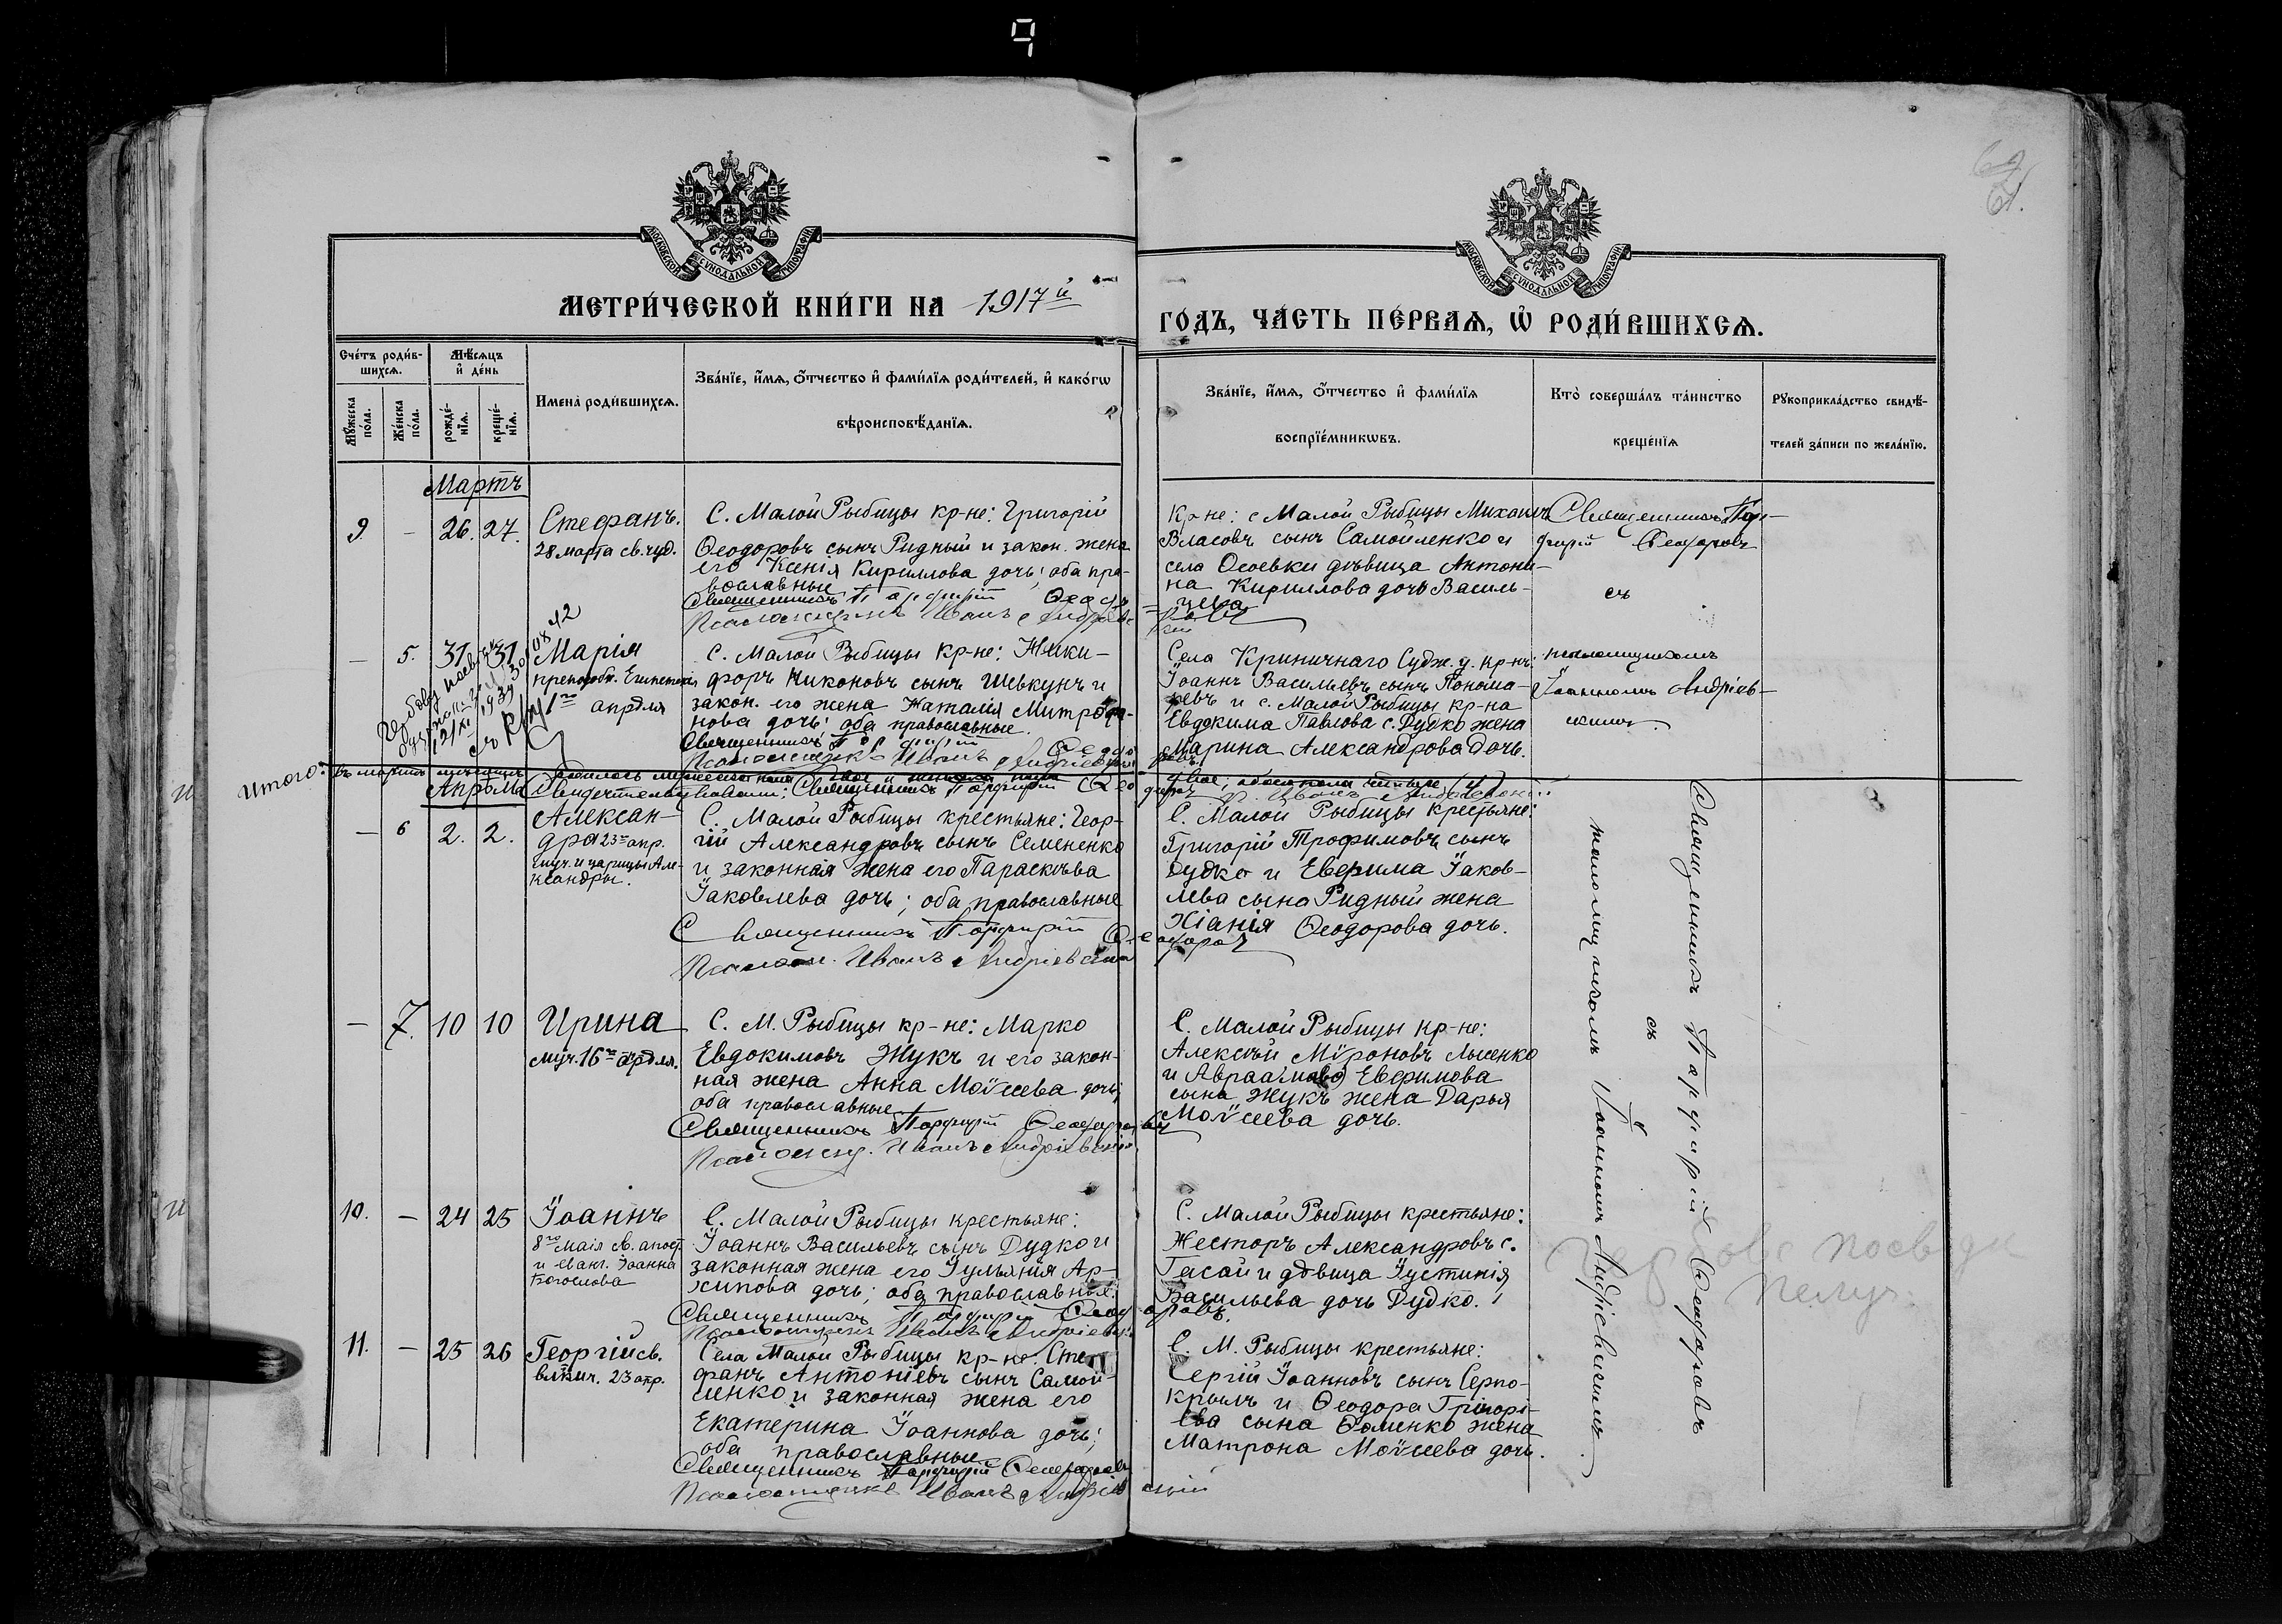 9
62
61.
МОСКОВСКОЙ СѴНОДАЛЬНОЙ ТИПОГРАФІИ
МОСКОВСКОЙ СѴНОДАЛЬНОЙ ТИПОГРАФІИ
МЕТРИ́ЧЕСКОЙ КНИ́ГИ НА 1917й
ГО́ДЪ, ЧА́СТЬ ПЕ́РВАѦ, Ѡ҆ РОДИ́ВШИХСѦ.
Сче́тъ роди́в-
шихсѧ.
Мꙋ́жеска по́ла.
Же́нска по́ла.
Мѣ́сѧцъ
и҆ де́нь
рожде́-
нїѧ.
креще́-
нїѧ.
Имена̀ роди́вшихсѧ.
Зва́нїе, и҆́мѧ, ѻ҆́тчество и҆ фами́лїѧ роди́телей, и҆ како́гѡ
вѣроисповѣ́данїѧ.
Зва́нїе, и҆́мѧ, ѻ҆́тчество и҆ фами́лїѧ
воспрїе́мникѡвъ.
Кто̀ соверша́лъ та́инство
креще́нїѧ
Рꙋкоприкла́дство свидѣ́-
телей за́писи по жела́нїю.
Мартъ
9. - 26. 27. Стефанъ.
28 марта св. чуд.
С. Малой Рыбицы кр-не: Григорій
Ѳеодоровъ сынъ Ридный и закон. жена
его Ксенія Кириллова дочь; оба пра-
вославные
Священникъ Порфирій Ѳеодо-
ровъ
Псаломщикъ Иванъ Андріевс
кій
Кр-не: с Малой Рыбицы Михаилъ
Власовъ сынъ Самойленко и
села Осоевки дѣвица Антони-
на Кириллова дочь Василь-
цева
Священникъ Пор-
фирій Ѳеодоровъ
съ
псаломщикомъ
Іоанномъ Андріев-
скимъ.
- 5. 31 31 Марія
преподобн. Египетскія
1го апрѣля
12/XI 1939
С. Малой Рыбицы кр-не: Ники-
форъ Никоновъ сынъ Шевкунъ и
закон. его жена Наталія Митрофа-
нова дочь; оба православные.
Священникъ Порфирій Ѳеодо
ровъ.
Псаломщикъ Иванъ Андріевскій
Села Криничнаго Судж. у. кр-нъ:
Іоаннъ Васильевъ сынъ Понома-
ревъ и с. Малой Рыбицы кр-на
Евдокима Павлова с. Дудко жена
Марина Александрова дочь.
Итого: въ мартѣ мѣсяцѣ родилось мужеска пола двое и женска пола двое; обоего пола четыре (4)
Свидетельствовали: Священникъ Порфирій Ѳеодоровъ
Апрѣль
- 6 2. 2. Алексан-
дра 23го апр.
муч. и царицы Але-
ксандры.
С. Малой Рыбицы крестьяне: Геор-
гій Александровъ сынъ Семененко
и законная жена его Параскѣва
Іаковлева дочь; оба православные
Священникъ Порфирій Ѳеодоровъ
Псалом. Иванъ Андріевскій
С. Малой Рыбицы крестьяне:
Григорій Трофимовъ сынъ
Дудко и Евфима Іаков-
лева сына Ридный жена
Хіанія Ѳеодорова дочь.
- 7. 10 10 Ирина
муч. 16го апрѣля.
С. М. Рыбицы кр-не: Марко
Евдокимовъ Жукъ и его закон-
ная жена Анна Моѵсеева дочь;
оба православные.
Священникъ Порфирій Ѳеодоровъ
Псаломщ. Иванъ Андріевскій
С. Малой Рыбицы кр-не:
Алексѣй Мѵроновъ Лысенко
и Авраамова Евфимова
сына Жукъ жена Дарья
Моѵсеева дочь.
Священникъ Порфирій Ѳеодоровъ
съ
псаломщикомъ Іоанномъ Андріевскимъ.
10. - 24 25 Іоаннъ
8го Маія св. апост.
и еванг. Іоанна
Богослова
С. Малой Рыбицы крестьяне:
Іоаннъ Васильевъ сынъ Дудко и
законная жена его Іуліанія Ар-
хипова дочь; оба православные.
Священникъ Порфирій Ѳеодоровъ.
Псаломщикъ Иванъ Андріевскій
С. Малой Рыбицы крестьяне:
Несторъ Александровъ с.
Гасай и дѣвица Іустинія
Васильева дочь Дудко.
11. - 25 26 Георгій св.
влкмч. 23 апр.
Села Малой Рыбицы кр-не: Сте-
фанъ Антоніевъ сынъ Самой-
ленко и законная жена его
Екатерина Іоаннова дочь;
оба православные
Священникъ Порфирій Ѳеодоровъ
Псаломщикъ Иванъ Андріевскій
С. М. Рыбицы крестьяне:
Сергій Іоанновъ сынъ Серпо-
крылъ и Ѳеодора Григорі-
ева сына Ѳоменко жена
Матрона Моѵсеева дочь.